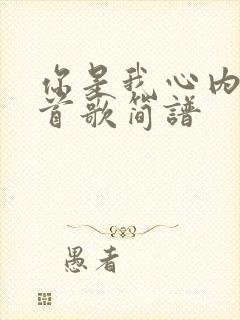 你是我心内
首歌简譜
愚者